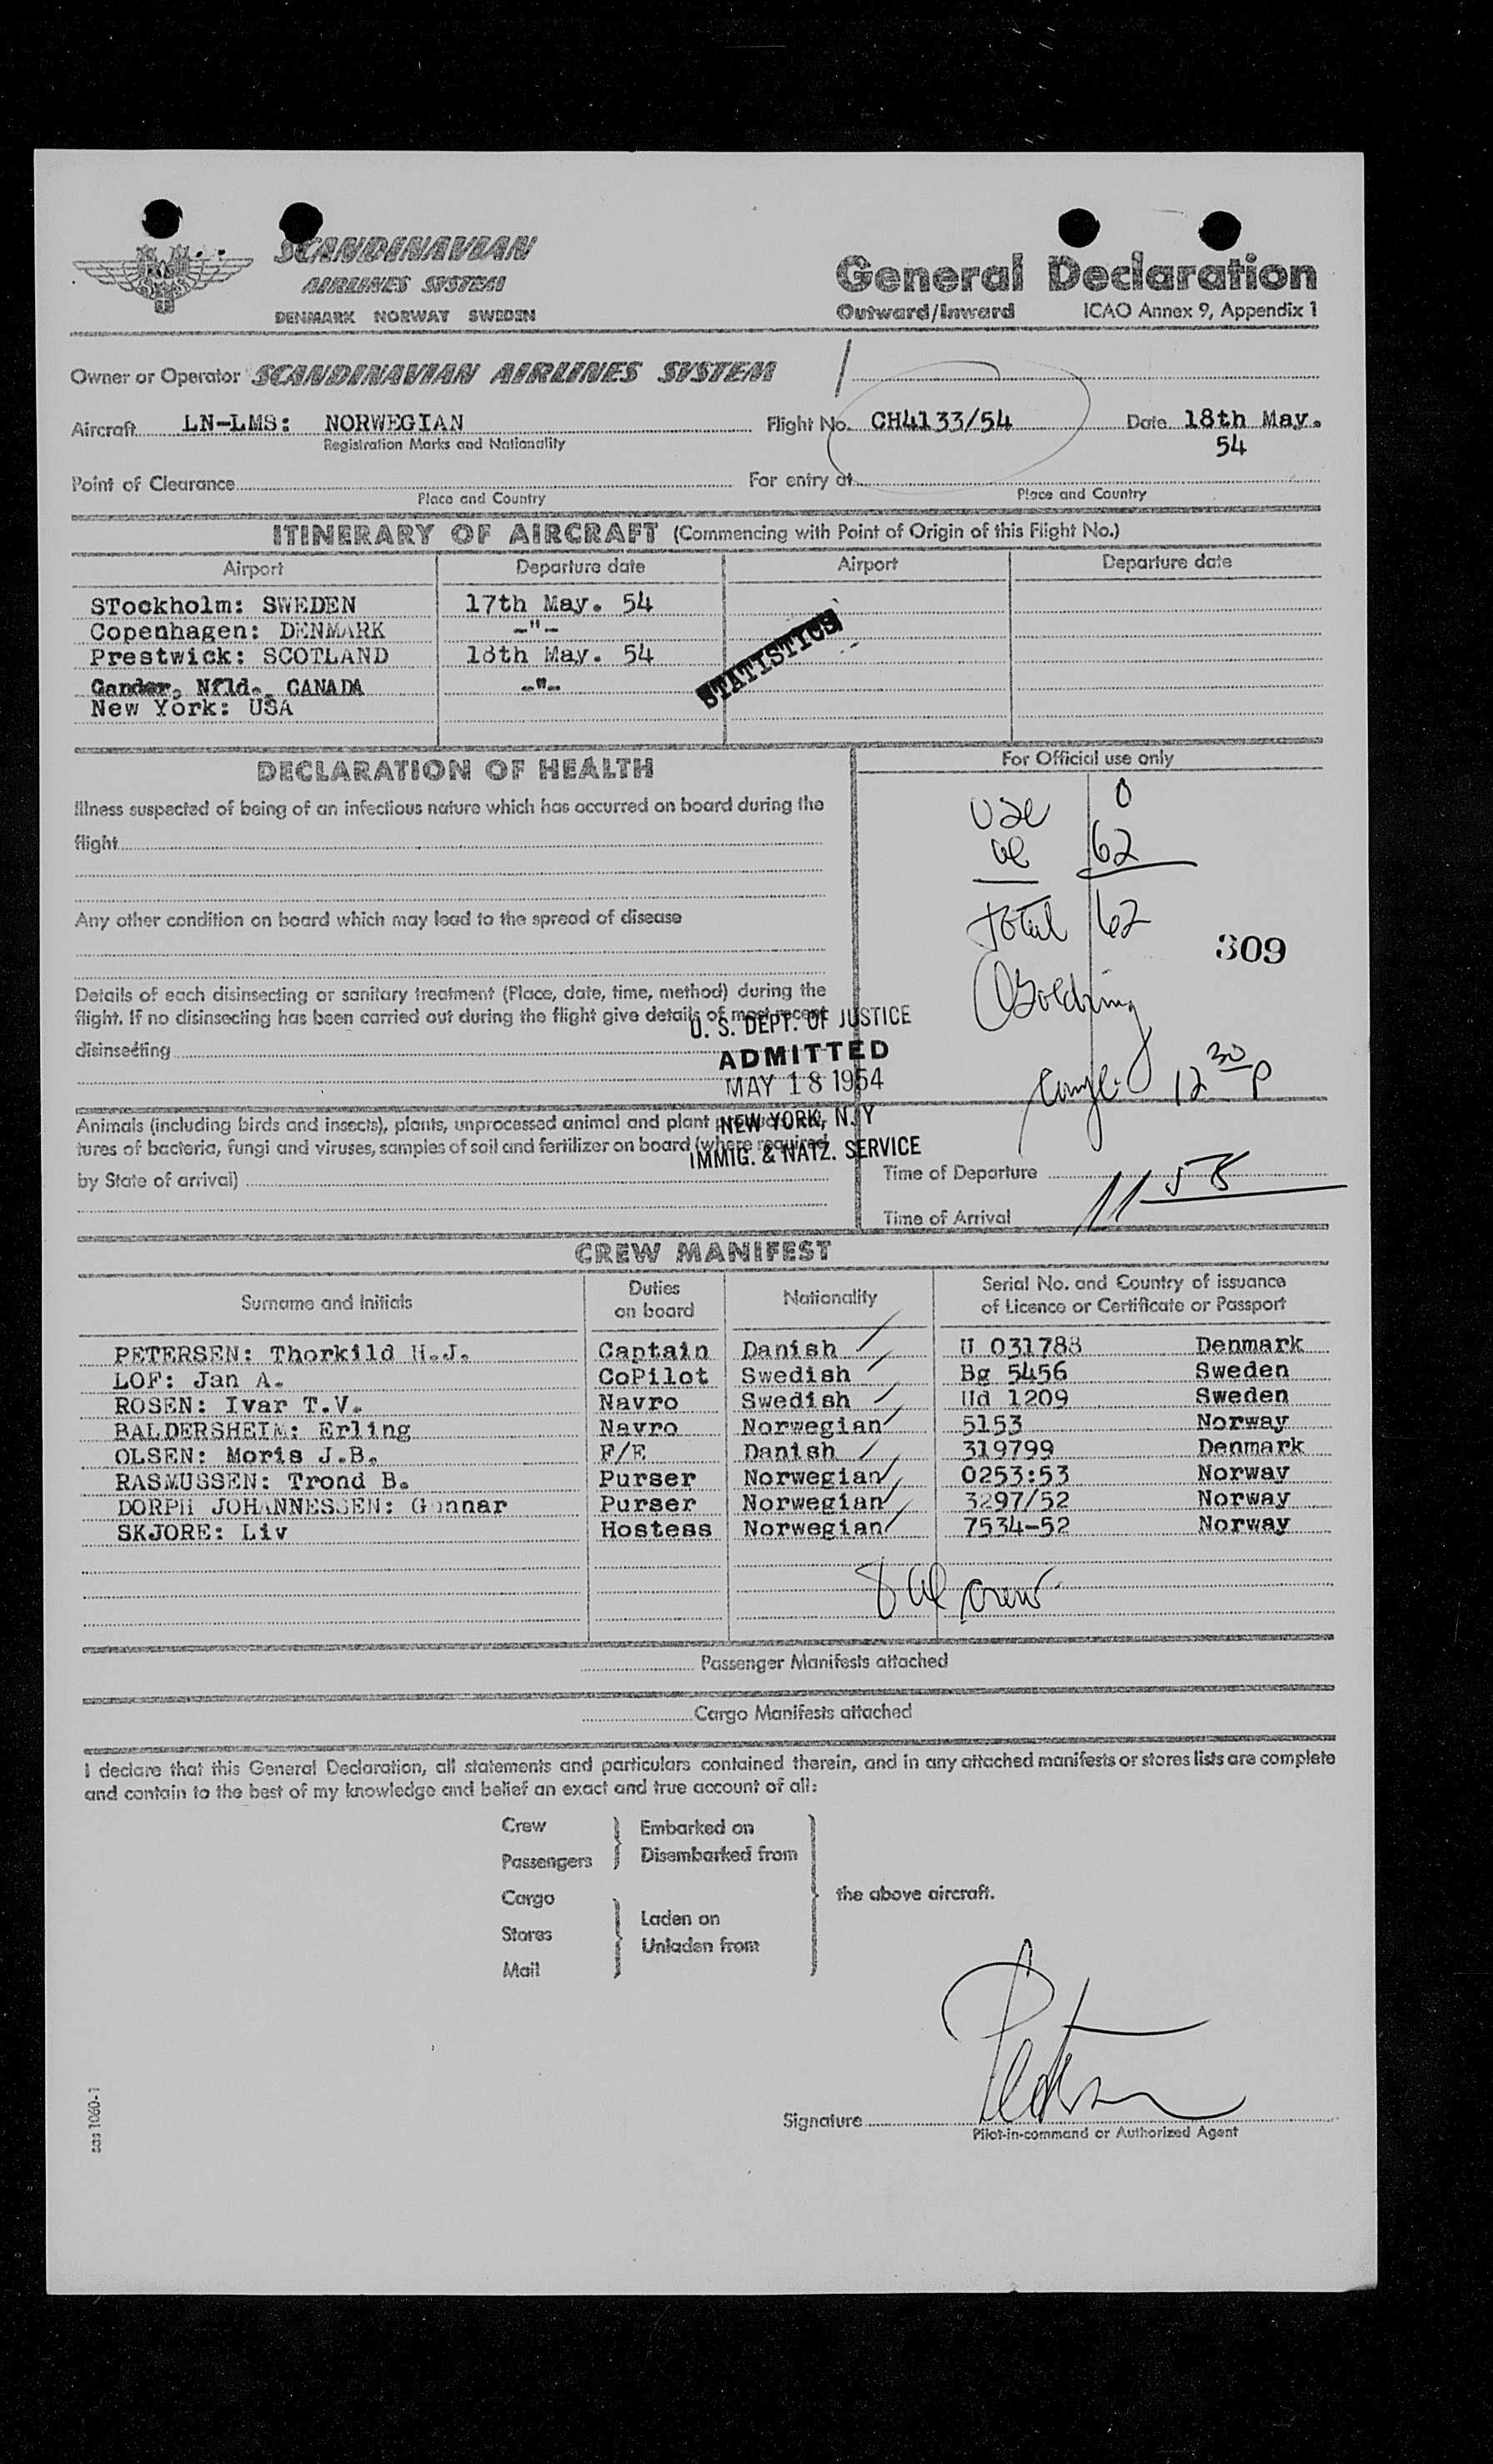 SCANDINAVIAN
AIRLINES SYSTEM
DENMARK NORWAY SWEDEN
General Declaration
Outward/Inward ICAO Annex 9, Appendix 1
Owner or Operator SCANDINAVIAN AIRLINES SYSTEM
Aircraft LN-LMS: NORWEGIAN Flight No. CH4133/54 Date 18th May.
54
Registration Marks and Nationality
Point of Clearance For entry at
Place and Country Place and Country
ITINERARY OF AIRCRAFT (Commencing with Point of Origin of this Flight No.)
Airport Departure date Airport Departure date
STockholm: SWEDEN 17th May. 54
Copenhagen: DENMARK -"-
Prestwick: SCOTLAND 18th May. 54
Gander, Nfld., CANADA -"-
New York: USA
STATISTICS
DECLARATION OF HEALTH
Illness suspected of being of an infectious nature which has occurred on board during the
flight
Any other condition on board which may lead to the spread of disease
Details of each disinsecting or sanitary treatment (Place, date, time, method) during the
flight. If no disinsecting has been carried out during the flight give details of most recent
disinsecting
U. S. DEPT. OF JUSTICE
ADMITTED
MAY 18 1954
NEW YORK, N.Y
IMMIG. & NATZ. SERVICE
Animals (including birds and insects), plants, unprocessed animal and plant
tures of bacteria, fungi and viruses, samples of soil and fertilizer on board (where required
by State of arrival)
For Official use only
0
62
Total 62
309
12 30 P
Time of Departure
11 58
Time of Arrival
CREW MANIFEST
Surname and Initials Duties on board Nationality Serial No. and Country of issuance of Licence or Certificate or Passport
PETERSEN: Thorkild H.J. Captain Danish U 031788 Denmark
LOF: Jan A. CoPilot Swedish Bg 5456 Sweden
ROSEN: Ivar T.V. Navro Swedish Ud 1209 Sweden
BALDERSHEIM: Erling Navro Norwegian 5153 Norway
OLSEN: Moris J.B. F/E Danish 319799 Denmark
RASMUSSEN: Trond B. Purser Norwegian 0253:53 Norway
DORPH JOHANNESSEN: Gunnar Purser Norwegian 3297/52 Norway
SKJORE: Liv Hostess Norwegian 7534-52 Norway
8 al crew
Passenger Manifests attached
Cargo Manifests attached
I declare that this General Declaration, all statements and particulars contained therein, and in any attached manifests or stores lists are complete
and contain to the best of my knowledge and belief an exact and true account of all:
Crew
Passengers
Embarked on
Disembarked from
Cargo
Stores
Mail
Laden on
Unladen from
the above aircraft.
Signature
Pilot-in-command or Authorized Agent
sas 1060-1